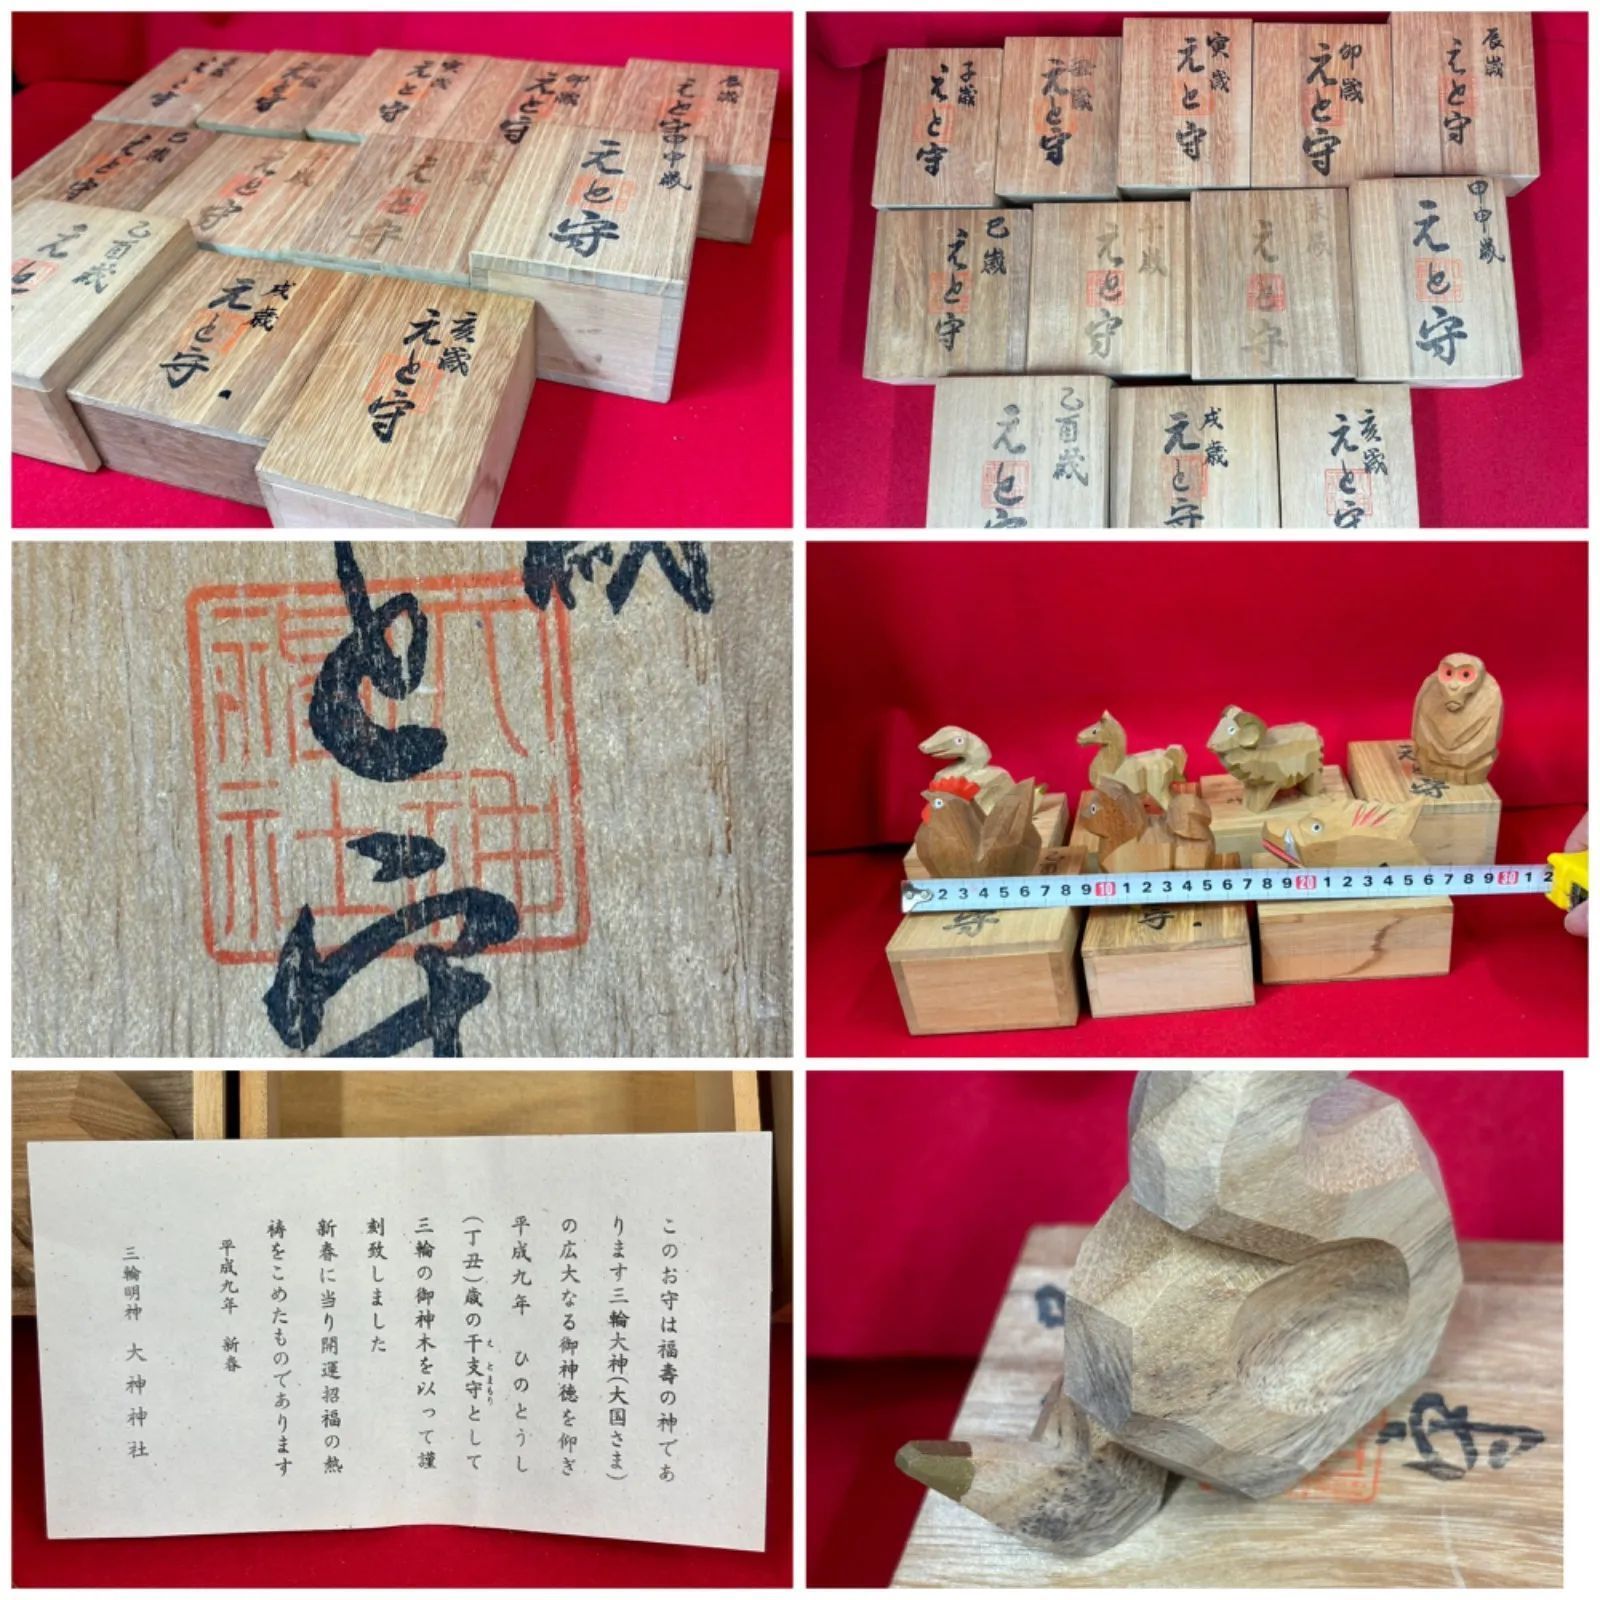 子歳
えと守
丑歳
えと守
寅歳
えと守
卯歳
えと守
辰歳
えと守
巳歳
えと守
午歳
えと守
未歳
えと守
甲申歳
えと守
乙酉歳
えと
戌歳
えと守
亥歳
えと守
子歳
えと守
丑歳
えと守
寅歳
えと守
卯歳
えと守
辰歳
えと守
巳歳
えと守
午歳
えと守
未歳
えと守
甲申歳
えと守
乙酉歳
えと守
戌歳
えと守
亥歳
えと守
と守
大神
福社
守
守
守
2 3 4 5 6 7 8 9 10 1 2 3 4 5 6 7 8 9 20 1 2 3 4 5 6 7 8 9 30 1 2
このお守は福壽の神であ
ります三輪大神(大国さま)
の広大なる御神徳を仰ぎ
平成九年 ひのとうし
(丁丑)歳の干支守として
えとまもり
三輪の御神木を以って謹
刻致しました
新春に当り開運招福の熱
祷をこめたものであります
平成九年 新春
三輪明神 大神神社
守